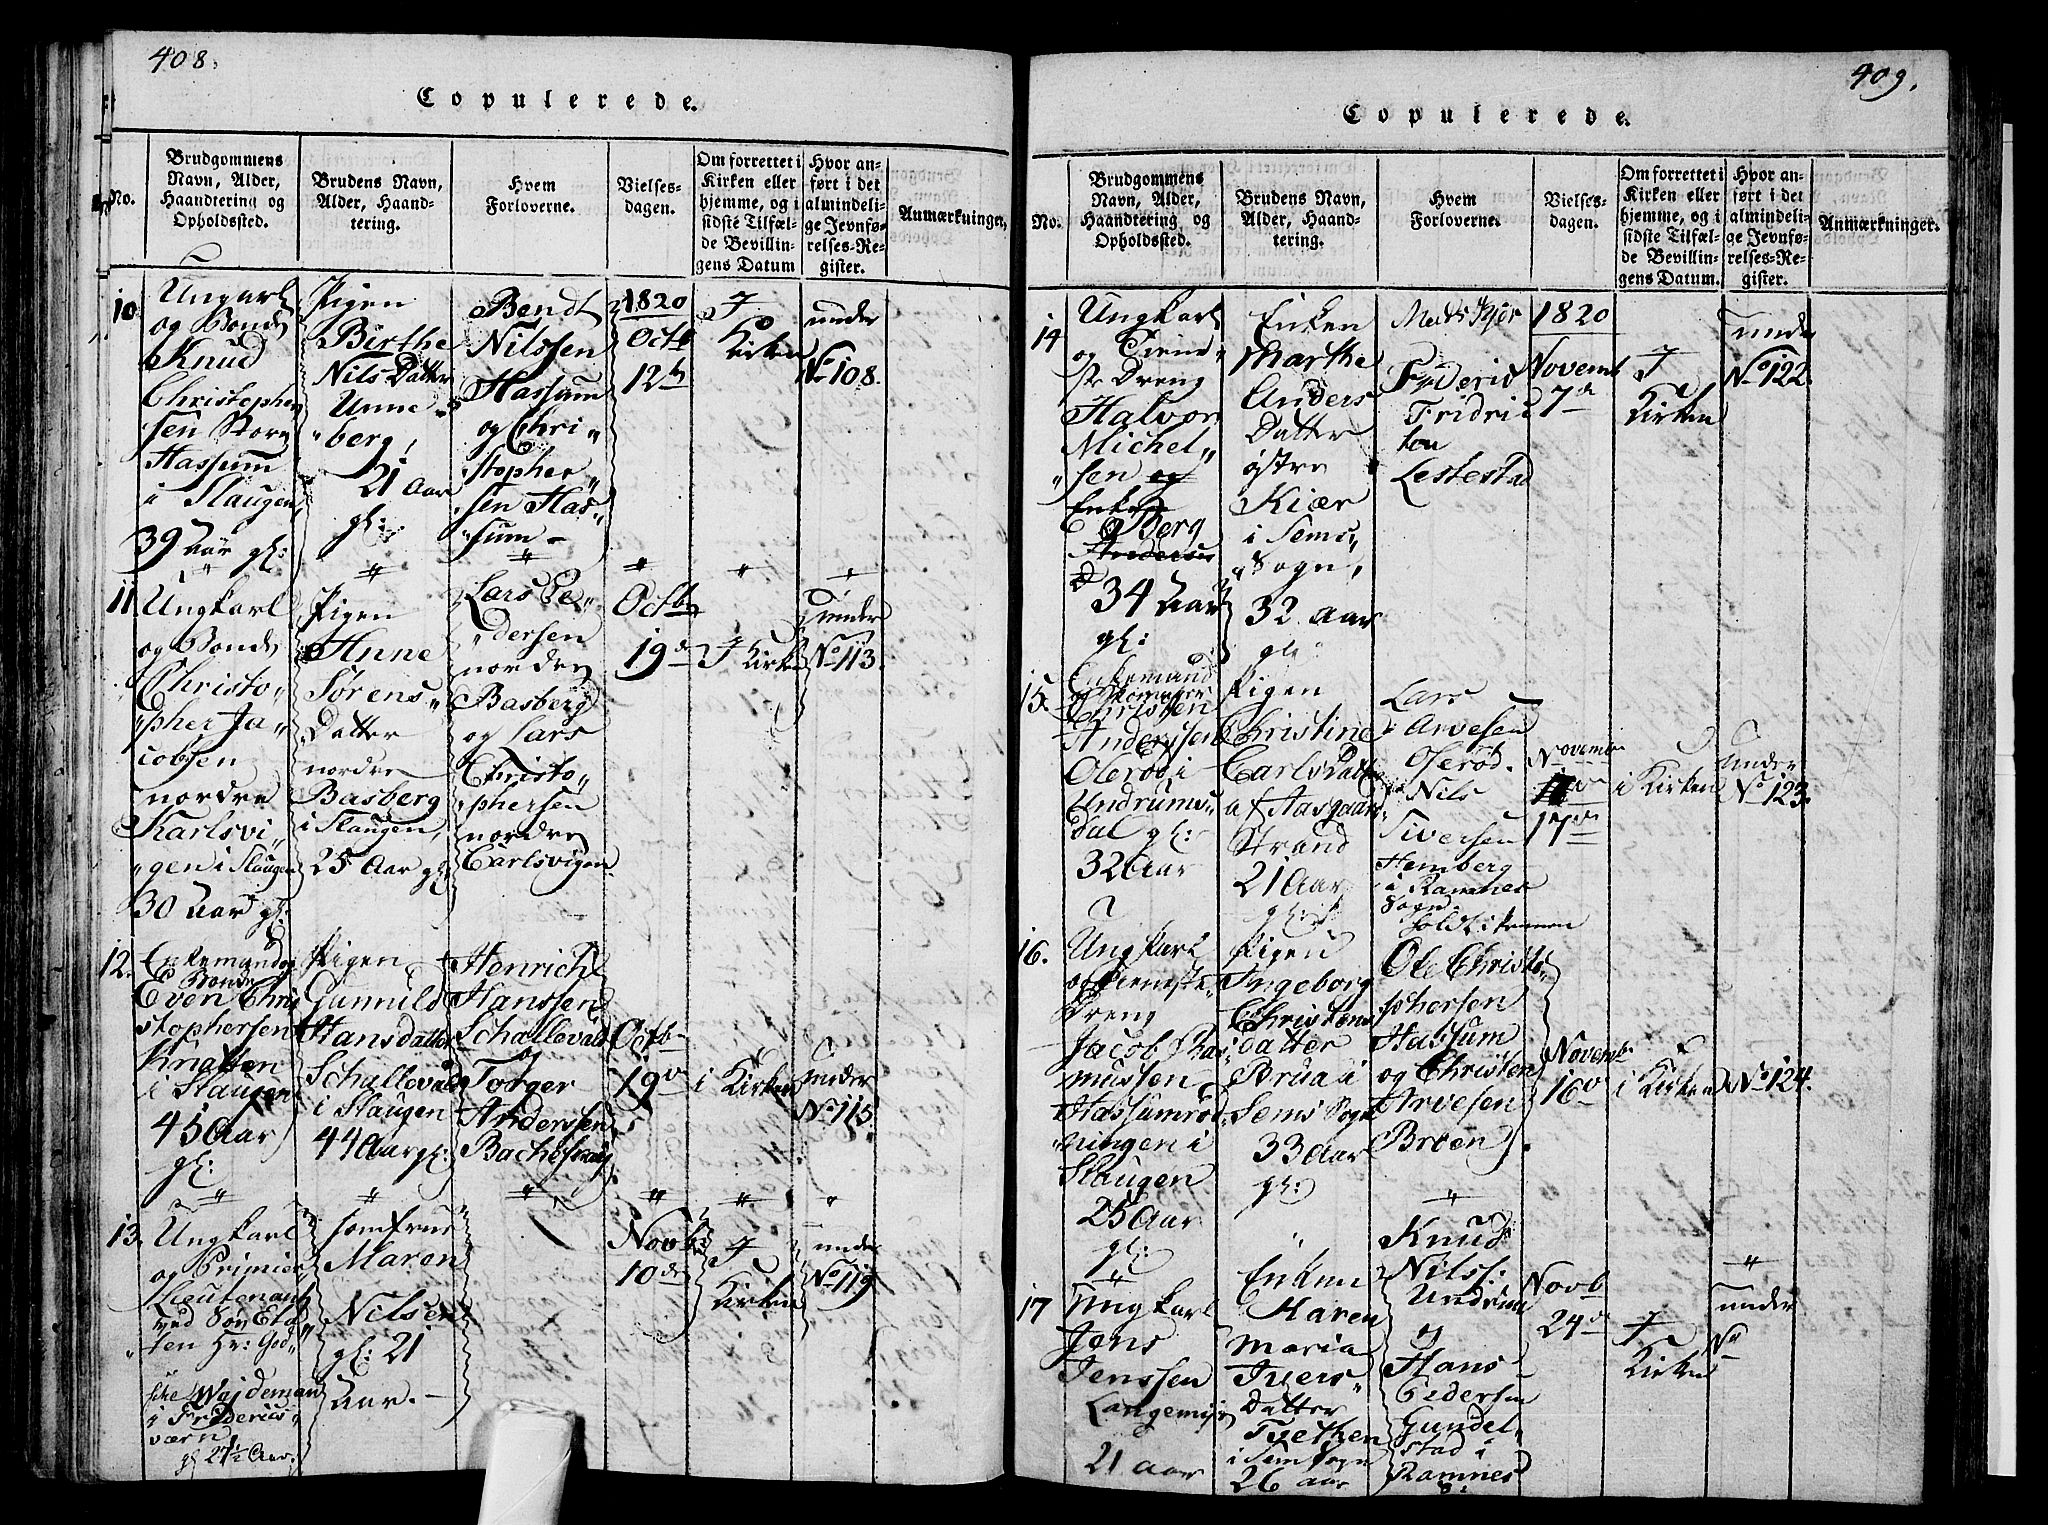 408.
Copulerede.
No.
Brudgommens
Navn, Alder,
Haandtering og
Opholdssted.
Brudens Navn,
Alder, Haand-
tering.
Hvem
Forloverne.
Vielses-
dagen.
Om forrettet i
Kirken eller
hjemme, og i
sidste Tilfæl-
de Bevillin-
gens Datum
Hvor an-
ført i det
almindeli-
ge Jevnfø-
relses-Re-
gister.
Anmærkninger.
10
Ungkarl
og Bonde
Knud
Christopher
sen Store
Hassum
i Slaugen
39 Aar gl:
Pigen
Birthe
Nils Datter
Unne
berg,
21 Aar
gl:
Bendt
Nilssen
Hassum
og Chri
stopher
sen Has
sum
1820
Octb
12te
I
Kirken
under
No 108.
11
Ungkarl
og Bonde
Christo
pher Ja
cobsen
nordre
Karlsvi
gen i Slaugen
30 Aar gl:
Pigen
Anne
Sørens
Datter
nordre
Basberg
i Slaugen,
25 Aar gl
Lars Pe
dersen
nordre
Basberg
og Lars
Christo
phersen
nordre
Carlsvigen
Octb
19de
I Kirken
under
No 113.
12.
Enkemand og
Bonde
Even Chri
stophersen
Knatten
i Slaugen
45 Aar
gl:
Pigen
Gunnild
Hansdatter
Schallevald
i Slaugen
44 Aar gl:
Henrich
Hanssen
Schallevald
og
Torger
Anderssen
Octb
19de
i Kirken
under
No 115.
13.
Ungkarl
og Primier
Lieutenant
ved Søe Eta
ten Hr: God
sche Wajdeman
i Frideriks
værn,
gl 27½ Aar.
Jomfrue
Maren
Nilsen
gl: 21
Aar.
Novb:
10de
I
Kirken
under
No 119
409.
Copulerede.
No.
Brudgommens
Navn, Alder,
Haandtering og
Opholdssted.
Brudens Navn,
Alder, Haand-
tering.
Hvem
Forloverne.
Vielses-
dagen.
Om forrettet i
Kirken eller
hjemme, og i
sidste Tilfæl-
de Bevillin-
gens Datum.
Hvor an-
ført i det
almindeli-
ge Jevnfø-
relses-Re-
gister.
Anmærkninger.
14
Ungkarl
og Tiene
ste Dreng
Halvor
Michel
sen og
Enke
Berg
34 Aar
gl:
Enken
Marthe
Anders
Datter
østre
Kiær
i Sems
Sogn,
32 Aar
gl:
Lestestad
1820
Novemb
7de
I
Kirken
under
No 122.
15.
Enkemand
Christen
Anderssen
Olerød i
Undrums
dal gl:
32 Aar
Pigen
Christine
Carls Datter
af Aasgaard
Strand
21 Aar
gl:
Lars
Arvesen
Olerød.
Nils
Siversen
Hemberg
i Ramnes
Sogn.
November
17de
i Kirken
under
No 123.
16.
Ungkarl
og Tieneste
Dreng
Jacob Ras
mussen
Hassumrød
ningen i
Slaugen
25 Aar
gl:
Pigen
Ingeborg
Christens
datter
Brua i
Sems Sogn
33 Aar
gl:
Ole Christo
phersen
Hassum
og Christen
Arvesen
Broen
Novemb
16de
i Kirken
No 124.
17
Ungkarl
Jens
Jenssen
21 Aar
Enken
Karen
Maria
Ivers
Datter
Tvethen
i Sem Sogn
26 Aar
Knud
Nilss:
Undrum
og
Hans
Pedersen
Gundel
stad i
Ramnes
S:
Novb
24de
I
Kirken
under
No